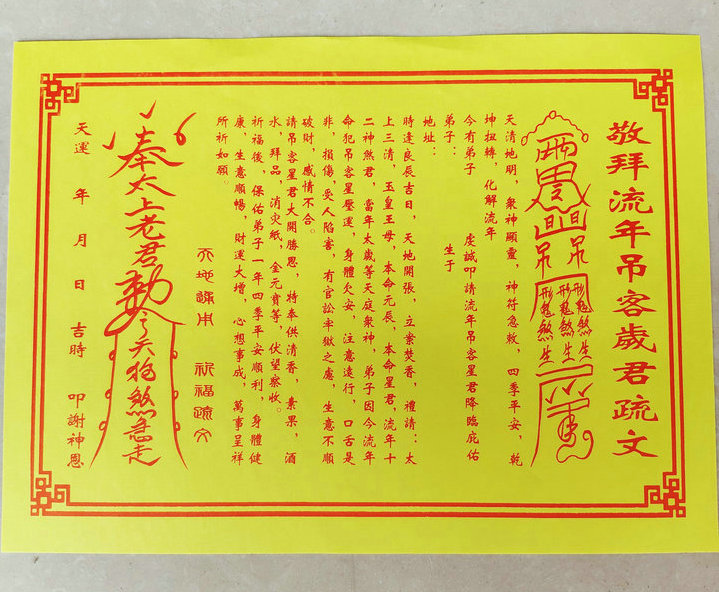 敬拜流年吊客歲君疏文
雨
吊 吊
形冤煞生 形冤煞生 形冤煞生
天清地明，衆神顯靈，神符急敕，四季平安，乾
坤扭轉，化解流年
今有弟子 虔誠叩請流年吊客星君降臨庇佑
弟子： 生于
地址：
時逢良辰吉日，天地開張，立案焚香，禮請：太
上三清，玉皇王母，本命元辰，本命星君，流年十
二神煞君，當年太歲等天庭衆神，弟子因今流年
命犯吊客星壓運，身體欠安，注意遠行，口舌是
非，損傷，受人陷害，有官訟牢獄之慮，生意不順
破財，感情不合。
請吊客星君大開勝恩，特奉供清香，素果 酒
水，拜品，消灾紙，金元寶等，伏望察收。
祈福後，保佑弟子一年四季平安順利，身體健
康，生意順暢，財運大增，心想事成，萬事呈祥
所祈如願。
天地課用 祈福疏文
奉太上老君勅令天狗煞急走
天運 年 月 日 吉時 叩謝神恩